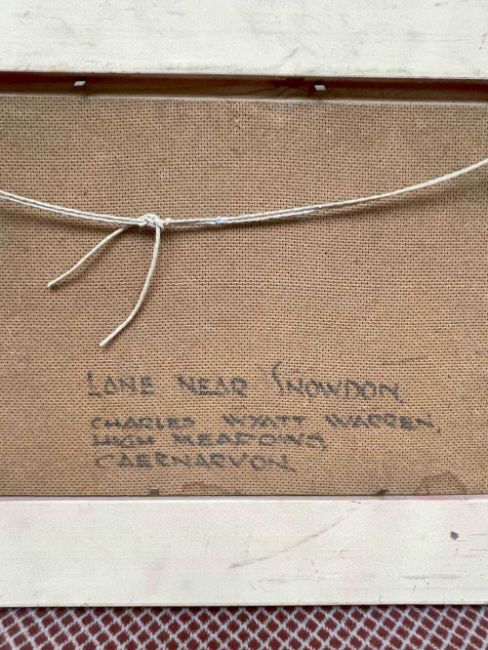 LANE NEAR SNOWDON
CHARLES WYATT WARREN,
HIGH MEADOWS,
CAERNARVON.